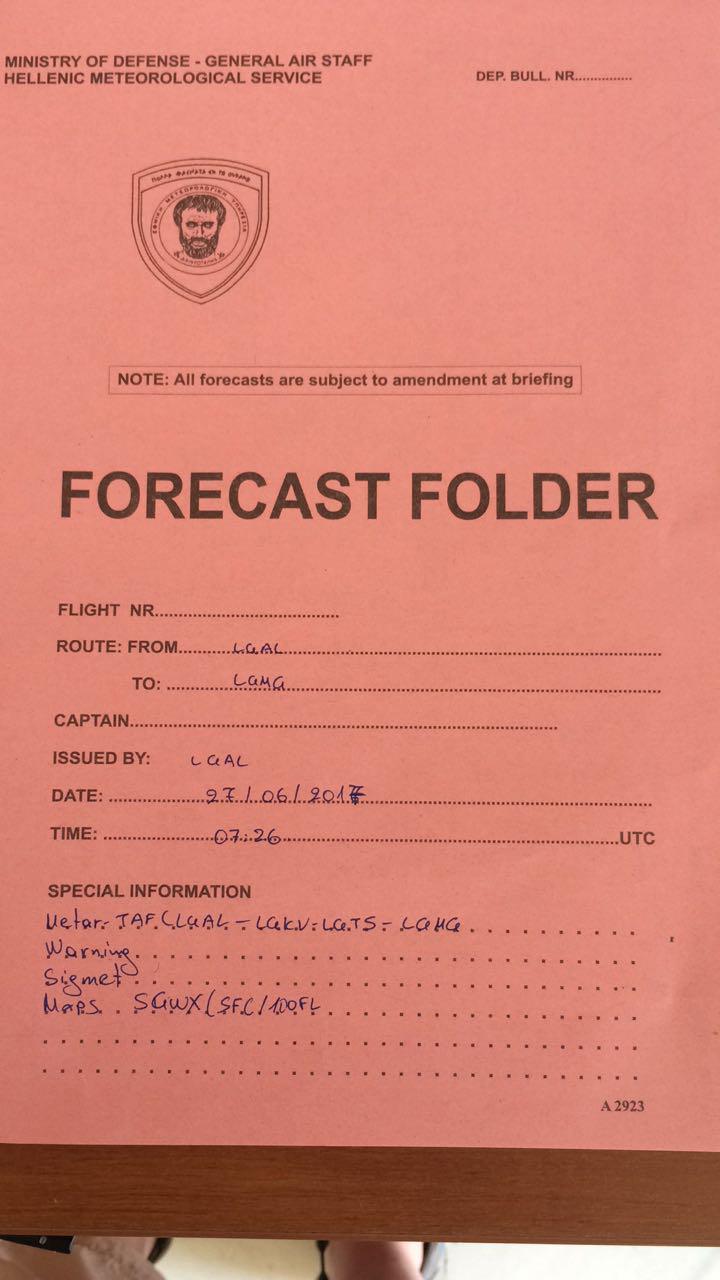 MINISTRY OF DEFENSE - GENERAL AIR STAFF
HELLENIC METEOROLOGICAL SERVICE
DEP. BULL. NR...............
ΠΟΛΛΑ ΦΑΣΜΑΤΑ ΕΝ ΤΩ ΟΥΡΑΝΩ
ΕΘΝΙΚΗ ΜΕΤΕΩΡΟΛΟΓΙΚΗ ΥΠΗΡΕΣΙΑ
ΑΡΙΣΤΟΤΕΛΗΣ
NOTE: All forecasts are subject to amendment at briefing
FORECAST FOLDER
FLIGHT NR.............................................
ROUTE: FROM LGAL
TO: LGMG
CAPTAIN.............................................
ISSUED BY: LGAL
DATE: 27/06/2017
TIME: 07:26 UTC
SPECIAL INFORMATION
Metar-TAF (LGAL-LGKV-LGTS-LGMG
Warning
Sigmet
Maps SGWX(SFC/100FL
A 2923